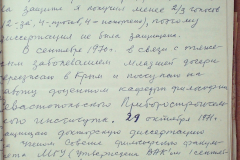 на защите я получил менее 2/3 голосов
(2-за, 4-против, 4-), поэтому
диссертация не была защищена.
В сентябре 1970 г. в связи с
заболеванием младшей дочери
переехал в Крым и поступил на
доцентом кафедры философии
Севастопольского Приборостроительного
института. 29 октября 1971 г.
защитил докторскую диссертацию
Ученом Совете философского
МГУ (утверждена ВАК'ом